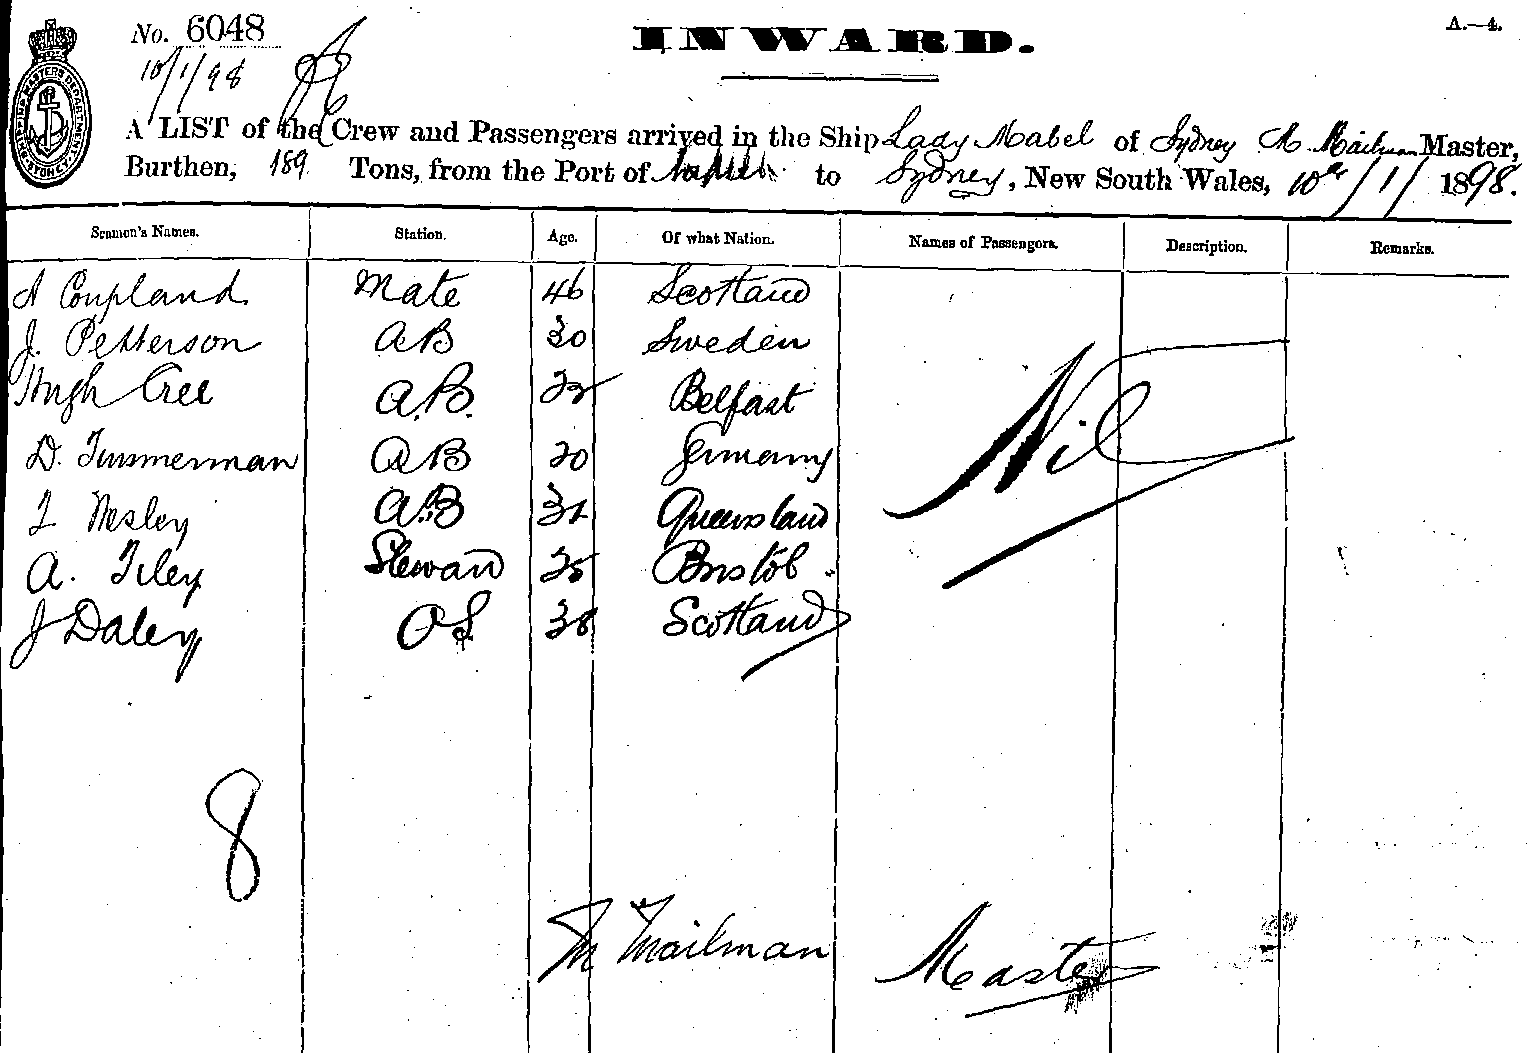 No. 6048
INWARD.
A.—4.
10/1/98
SHIPPING MASTERS DEPARTMENT SYDNEY
A LIST of the Crew and Passengers arrived in the Ship Lady Mabel of Sydney M Mailman Master,
Burthen, 189 Tons, from the Port of to Sydney, New South Wales, 10th/1/1898.
Seamen's Names. Station. Age. Of what Nation. Names of Passengers. Description. Remarks.
A Coupland Mate 46 Scotland
J. Petterson AB 30 Sweden
Hugh Cree A.B. Belfast
D. Timmerman AB 20 Germany
Nesley A.B Queensland
A. Tiley Steward 25 Bristol
J Daley OS 38 Scotland
Nil
8
M Mailman Master